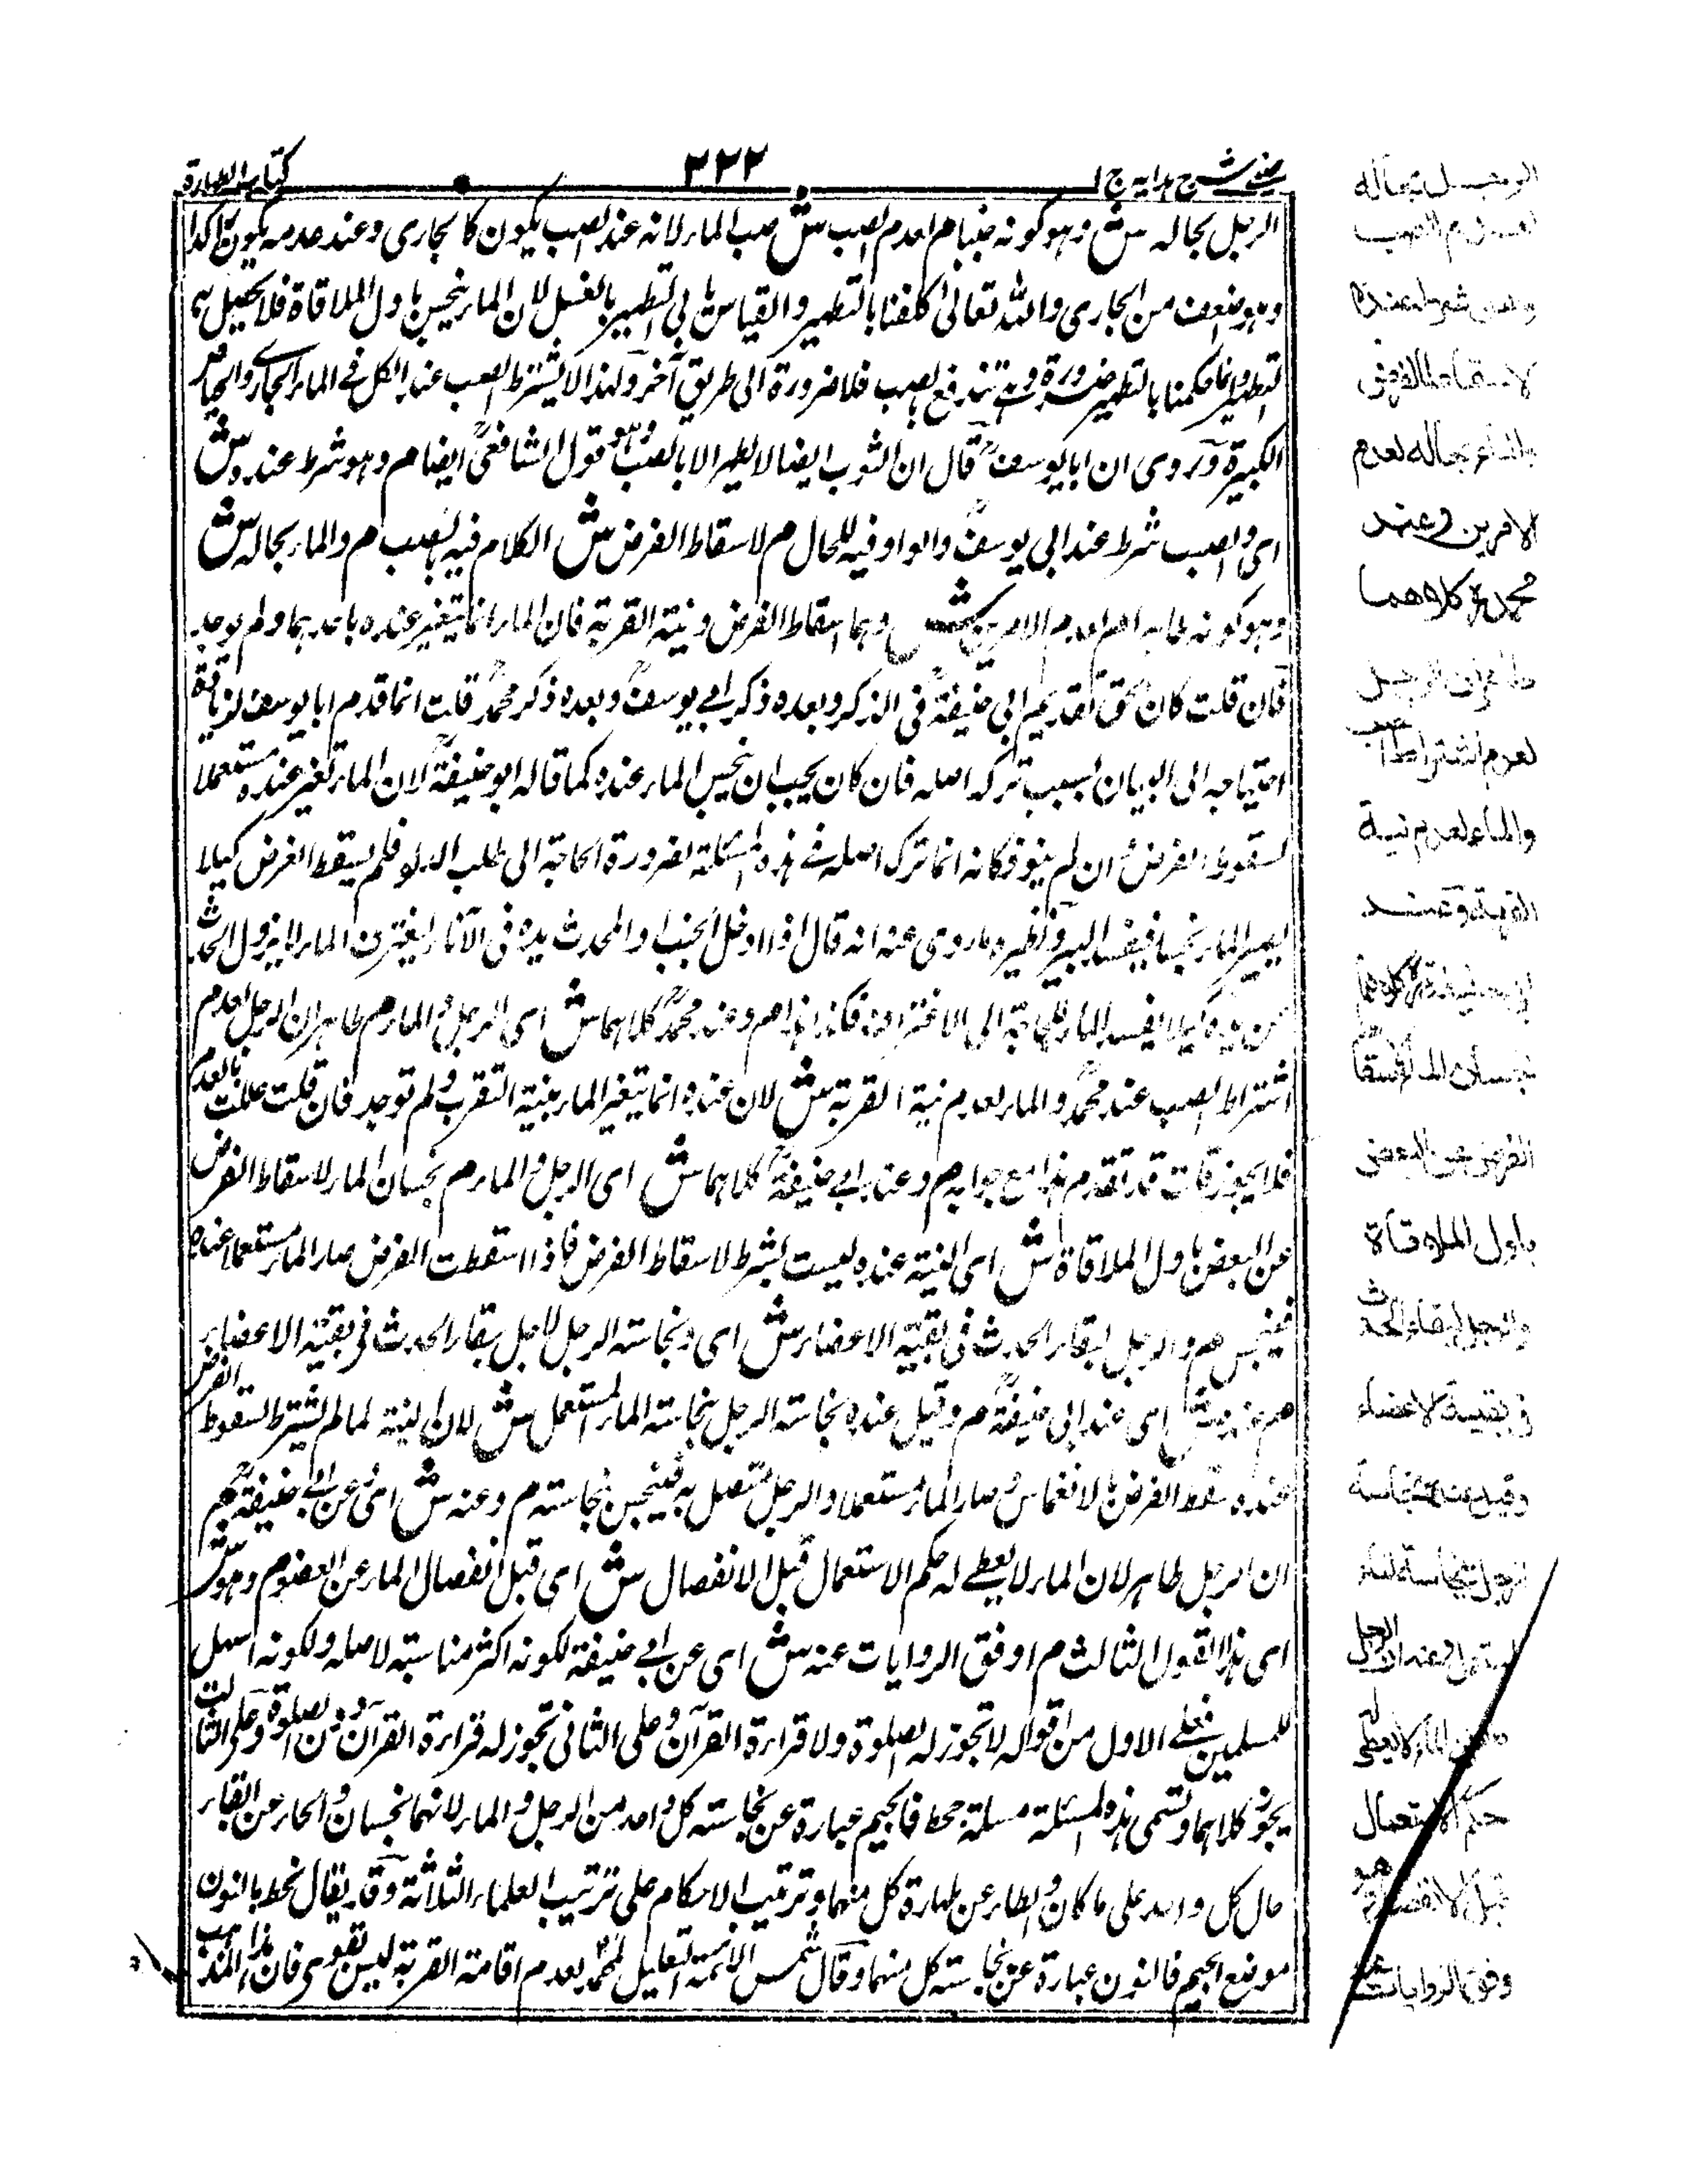 عینی شرح هدایه ج ۱
۳۲۲
کتاب الطهارة
الرجل بحاله ش وهو کونه جنبا م لعدم الصب ش صب الماء لانه عند الصب یکون کالجاری وعند عدمه یکون راکدا
وهو اضعف من الجاری والله تعالی کلفنا بالتطهیر والقیاس یابی التطهیر بالغسل لان الماء ینجس باول الملاقاة فلا یحصل به
التطهیر وانما حکمنا بالتطهیر ضرورة وهی تندفع بالصب فلا ضرورة الی طریق آخر ولهذا لا یشترط الصب عند الکل فی الماء الجاری والحیاض
الکبیرة وروی ان ابا یوسف قال ان الثوب ایضا لا یطهر الا بالصب وهو قول الشافعی ایضا م وهو شرط عنده ش
ای والصب شرط عند ابی یوسف والواو فیه للحال م لاسقاط الفرض ش الکلام فیه بالصب م والماء بحاله ش
وهو کونه طاهرا م لعدم الامرین ش وهما اسقاط الفرض ونیة القربة فان الماء انما یتغیر عنده باحدهما ولم یوجد
فان قلت کان یحق تقدیم ابی حنیفة فی الذکر وبعده ذکر ابی یوسف وبعده ذکر محمد قلت انما قدم ابا یوسف لزیادة
احتیاجه الی البیان بسبب ترکه اصله فان کان یجب ان ینجس الماء عنده کما قاله ابو حنیفة لان الماء تغیر عنده مستعملا
لسقوط الفرض ان لم ینو فکانه انما ترک اصله فی هذه المسئلة لضرورة الحاجة الی طلب الدلو فلم یسقط الفرض کیلا
یصیر الماء نجسا فیفسد البیر ونظیره ما روی عنه انه قال اذا ادخل الجنب او المحدث یده فی الاناء لیغترف الماء لا یزول الحدث
عن یده کیلا یفسد الماء للحاجة الی الاغتراف فکذا هذا م وعند محمد کلاهما ش ای الرجل والماء م طاهران الرجل لعدم
اشتراط الصب عند محمد والماء لعدم نیة القربة ش لان عنده انما یتغیر الماء بنیة التقرب ولم توجد فان قلت عللت بالعدم
فلا یجوز قلت قد تقدم هذا مع جوابه م وعند ابی حنیفة کلاهما ش ای الرجل والماء م نجسان الماء لاسقاط الفرض
عن البعض باول الملاقاة ش ای النیة عنده لیست بشرط لاسقاط الفرض فاذا اسقطت الفرض صار الماء مستعملا عنده
فینجس م والرجل لبقاء الحدث فی بقیة الاعضاء ش ای ونجاسة الرجل لاجل بقاء الحدث فی بقیة الاعضاء
م عنده ش ای عند ابی حنیفة م وقیل عنده نجاسة الرجل بنجاسة الماء المستعمل ش لان النیة لما لم یشترط لسقوط الفرض
عنده سقط الفرض بالانغماس وصار الماء مستعملا والرجل متصل به فینجس بنجاسته م وعنه ش ای وعن ابی حنیفة م
ان الرجل طاهر لان الماء لا یعطی له حکم الاستعمال قبل الانفصال ش ای قبل انفصال الماء عن العضو م وهو ش
ای هذا القول الثالث م اوفق الروایات عنه ش ای عن ابی حنیفة لکونه اکثر مناسبة لاصله ولکونه اسهل
للمسلمین فعلی الاول من اقواله لا تجوز له الصلوة ولا قراءة القرآن وعلی الثانی تجوز له قراءة القرآن دون الصلوة وعلی الثالث
یجوز کلاهما وتسمی هذه المسئلة مسئلة جحط فالجیم عبارة عن نجاسة کل واحد من الرجل والماء لانهما نجسان والحاء عن ابقاء
حال کل واحد علی ما کان والطاء عن طهارة کل منهما وترتیب الاحکام علی ترتیب العلماء الثلاثة وقد یقال نحط بالنون
موضع الجیم فالنون عبارة عن نجاسة کل منهما وقال شمس الائمة التعلیل لمحمد بعدم اقامة القربة لیس بقوی فان هذا المذهب
الرجل بحاله
لعدم الصب
وهو شرط عنده
لاسقاط الفرض
والماء بحاله لعدم
الامرین وعند
محمد کلاهما
طاهران الرجل
لعدم اشتراط الصب
والماء لعدم نیة
القربة وعند
ابی حنیفة کلاهما
نجسان الماء لاسقاط
الفرض عن البعض
باول الملاقاة
والرجل لبقاء الحدث
فی بقیة الاعضاء
وقیل عنده نجاسة
الرجل بنجاسة الماء
المستعمل وعنه ان الرجل
طاهر لان الماء لا یعطی له
حکم الاستعمال
قبل الانفصال وهو
اوفق الروایات عنه